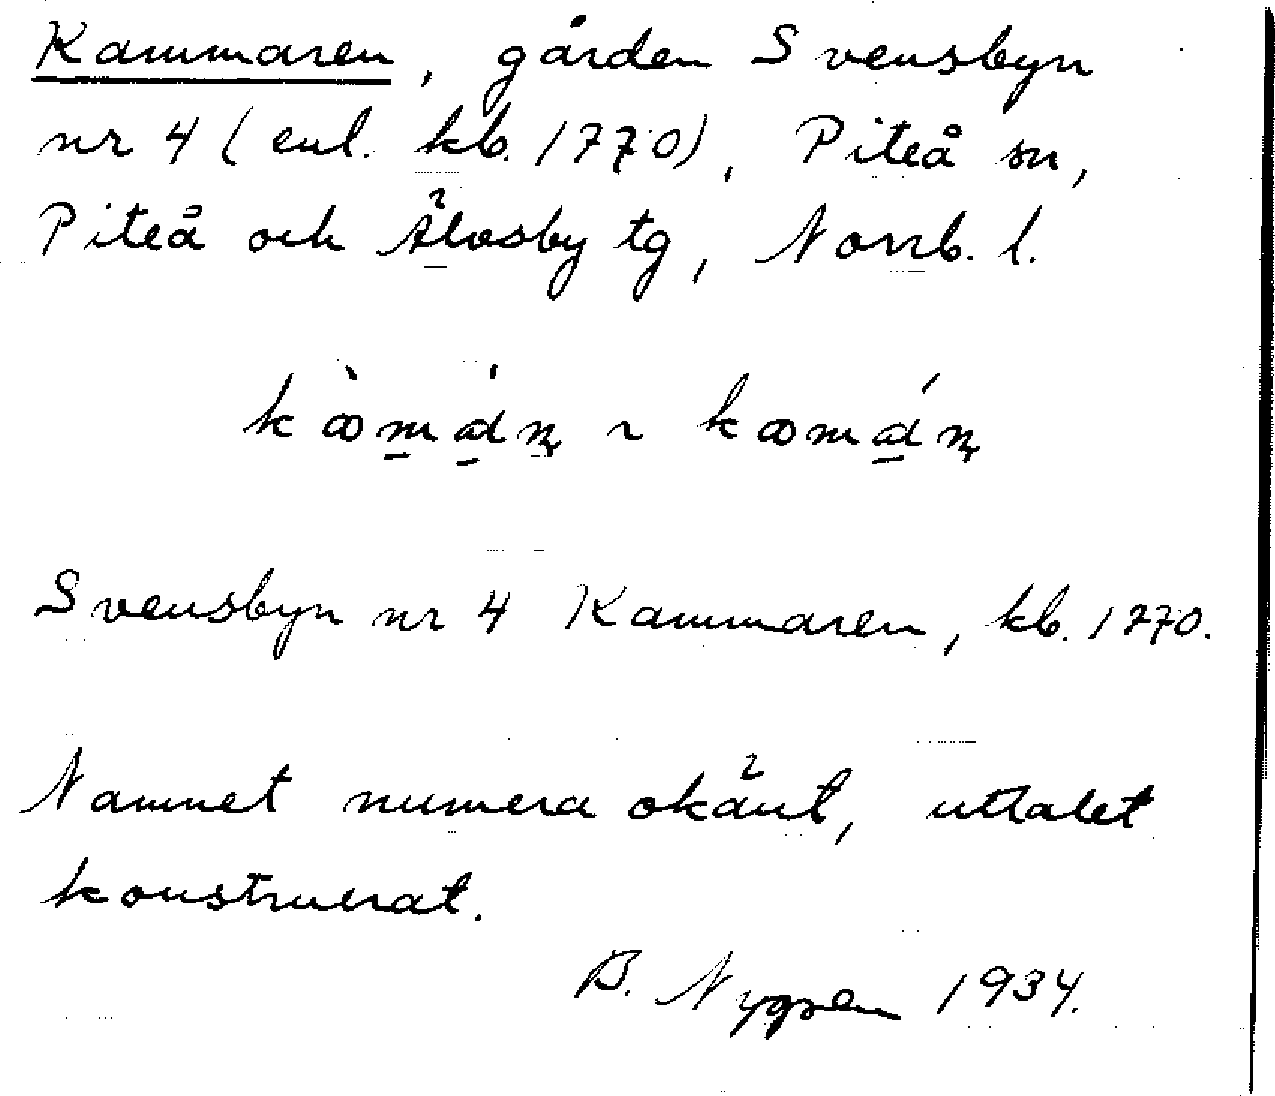 Kammaren, gården Svensbyn
nr 4 (enl. kb. 1770), Piteå sn,
Piteå och Älvsby tg, Norrb. l.
Svensbyn nr 4 Kammaren, kb. 1770.
Namnet numera okänt, uttalet
konstruerat.
B. Nygren 1934.